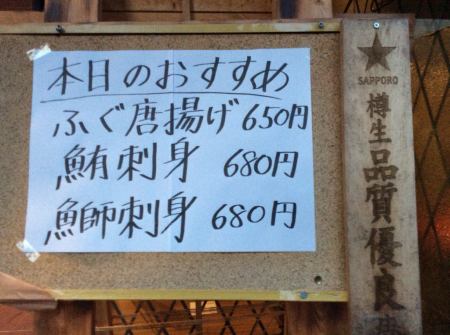 本日のおすすめ
ふぐ唐揚げ 650円
鮪刺身 680円
鰤刺身 680円
SAPPORO
樽生
品質優良